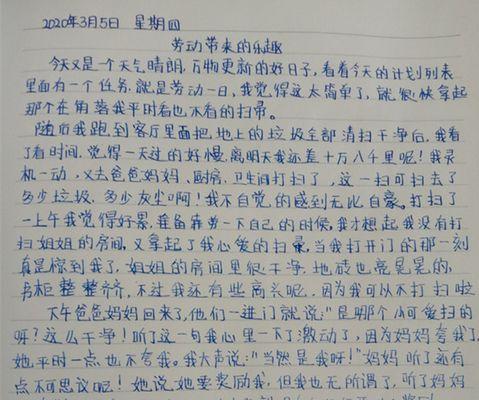 2020年3月5日 星期四
劳动带来的乐趣
今天又是一个天气晴朗,万物更新的好日子,看看今天的计划列表
里面有一个任务,就是劳动一日,我觉得这太简单了,就很快拿起
那个在角落我平时看也不看的扫帚。
随后我跑到客厅里面把,地上的垃圾全部清扫干净后,我看
了看时间,觉得一天过的好慢,离明天我还差十万八千里呢!我灵
机一动,又去爸爸妈妈、厨房、卫生间打扫了,这一扫可扫去了
多少垃圾,多少灰尘啊!我不自觉的感到无比自豪。打扫了
一上午我觉得好累,准备犒劳一下自己的时候,我才想起我没有打
扫姐姐的房间,又拿起了我心爱的扫帚,当我打开门的那一刻
真是惊到我了,姐姐的房间里很干净,地砖也亮晃晃的,
书柜整整齐齐,不过我还有些高兴呢,因为我可以不打扫啦
下午爸爸妈妈回来了,他们一进门就说:"是哪个小可爱扫的
呀?这么干净!听了这一句我心里一下子激动了,因为妈妈夸我了,
她平时一点也不夸我。我大声说:"当然是我呀!"妈妈听了还有
点不可思议呢!她说她要奖励我,但我也无所谓了,听了妈妈